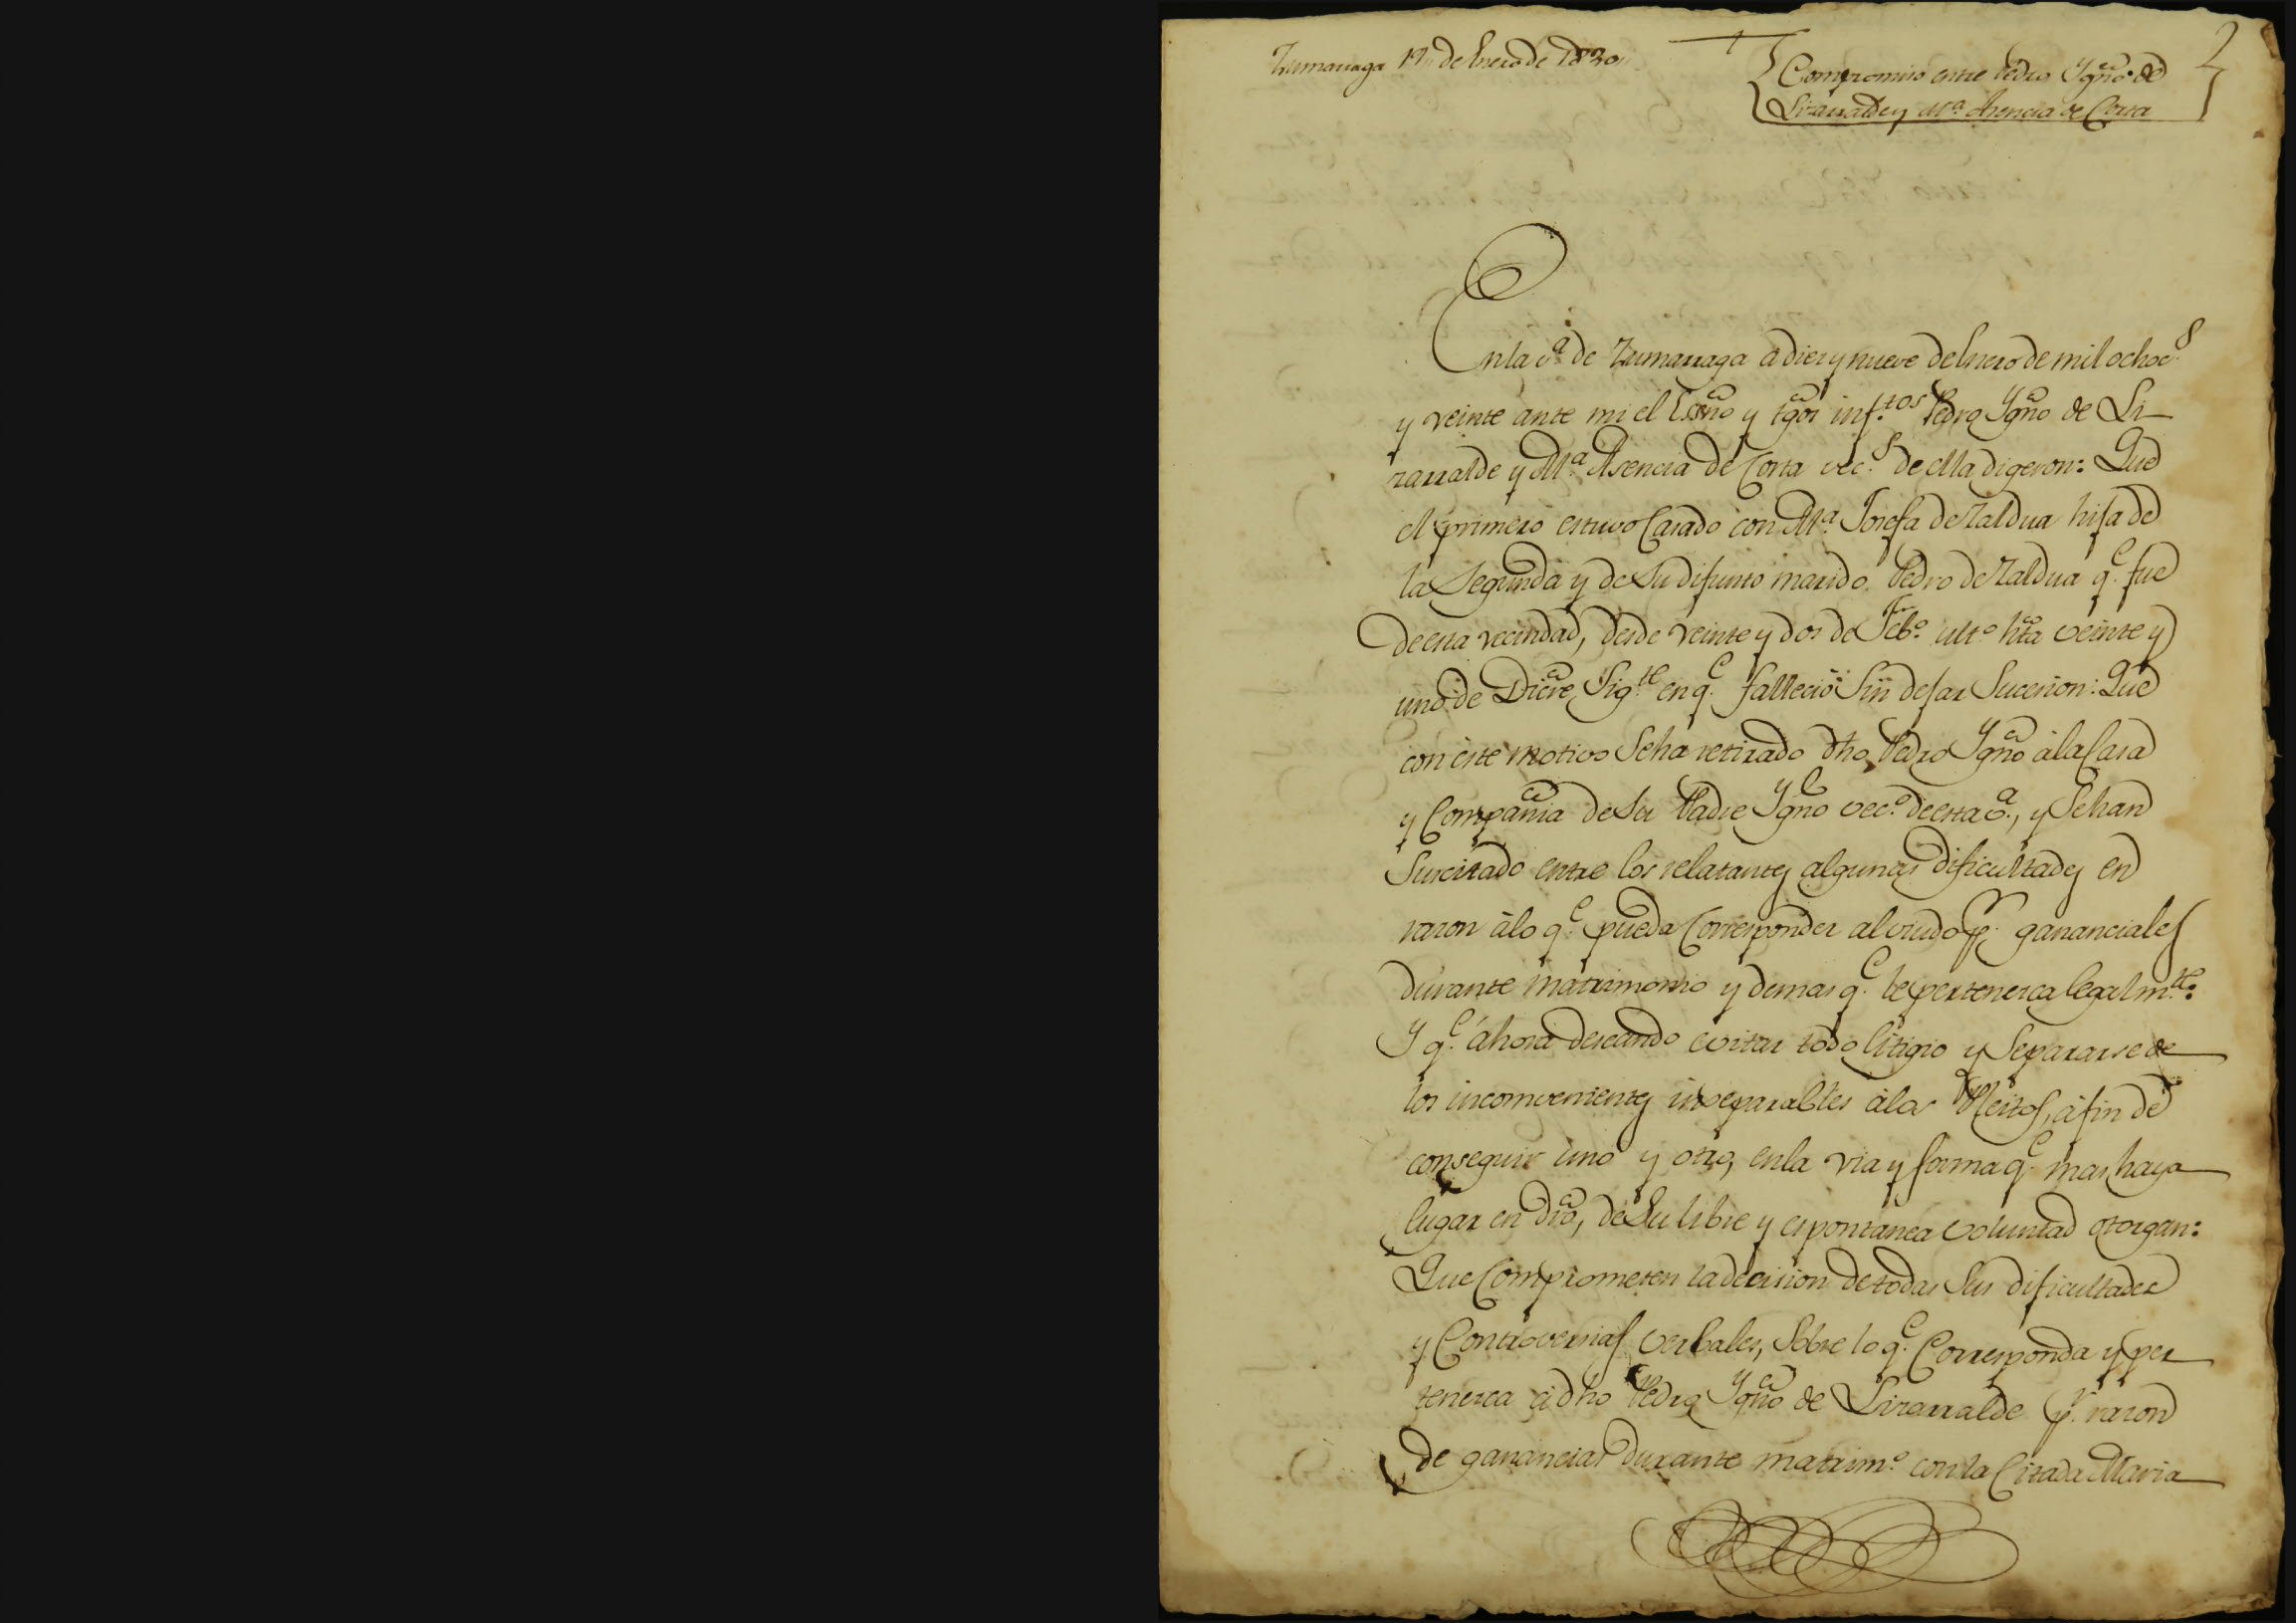 Zumarraga 19 de Enero de 1820
Compromiso entre Pedro Ygño. de
Lizarralde y Mª. Asencia de Corta
2
En la vª. de Zumarraga a diez y nueve de Enero de mil ochocs.
y veinte ante mi el Essño y tgos infrtos. Pedro Ygño de Li
zarralde y Mª. Asencia de Corta vecs. de ella digeron: Que
el primero estuvo Casado con Mª. Josefa de Zaldua hija de
la Segunda y de Su difunto marido Pedro de Zaldua qe. fue
de esta vecindad, desde veinte y dos de Febº. ultº. hta veinte y
uno de Dicre, Sigte. en qe. falleció Sin dejar Sucesion: Que
con este motivo Se ha retirado dho Pedro Ygño à la Casa
y Compañia de Su Padre Ygño vecº. de esta vª., y Se han
Suscitado entre los relatantes algunas dificultades en
razon à lo qe. pueda Corresponder al viudo pr. gananciales
durante matrimonio y demas qe. le pertenezca legalmte:
Y qe. ahora deseando evitar todo litigio y Separarse de
los incomvenientes inseparables à los Pleitos, à fin de
conseguir uno y otro, en la via y forma qe. mas haya
lugar en dro, de Su libre y espontanea voluntad otorgan:
Que Comprometen la decision de todas Sus dificultades
y Controversias verbales, Sobre lo qe. Corresponda y per
tenezca à dho Pedro Ygño de Lizarralde pr. razon
de ganancias durante matrimº. con la Citada Maria